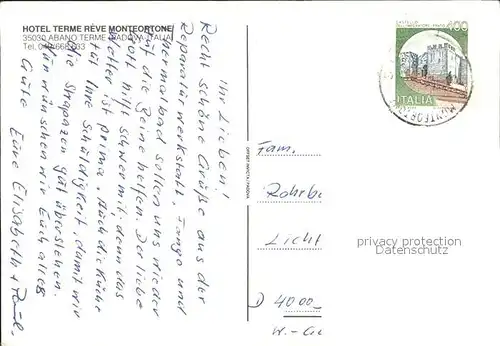 HOTEL TERME RÊVE MONTEORTONE
35030 ABANO TERME (PADOVA-ITALIA)
Tel. 049/668.033
Ihr Lieben!
Recht schöne Grüße aus der
Reparaturwerkstatt, Fango und
Thermalbad sollen uns wieder
auf die Beine helfen. Der liebe
Gott hilft schwer mit, denn das
Wetter ist prima. Auch die Küche
tut Ihre Schuldigkeit, damit wir
die Strapazen gut überstehen.
wünschen wir Euch alles
Gute Eure Elisabeth + Paul.
CASTELLO
400
ITALIA
MONTEORTONE
Fam.
Rohrba
Licht
D 4000
W.-G
privacy protection
Datenschutz